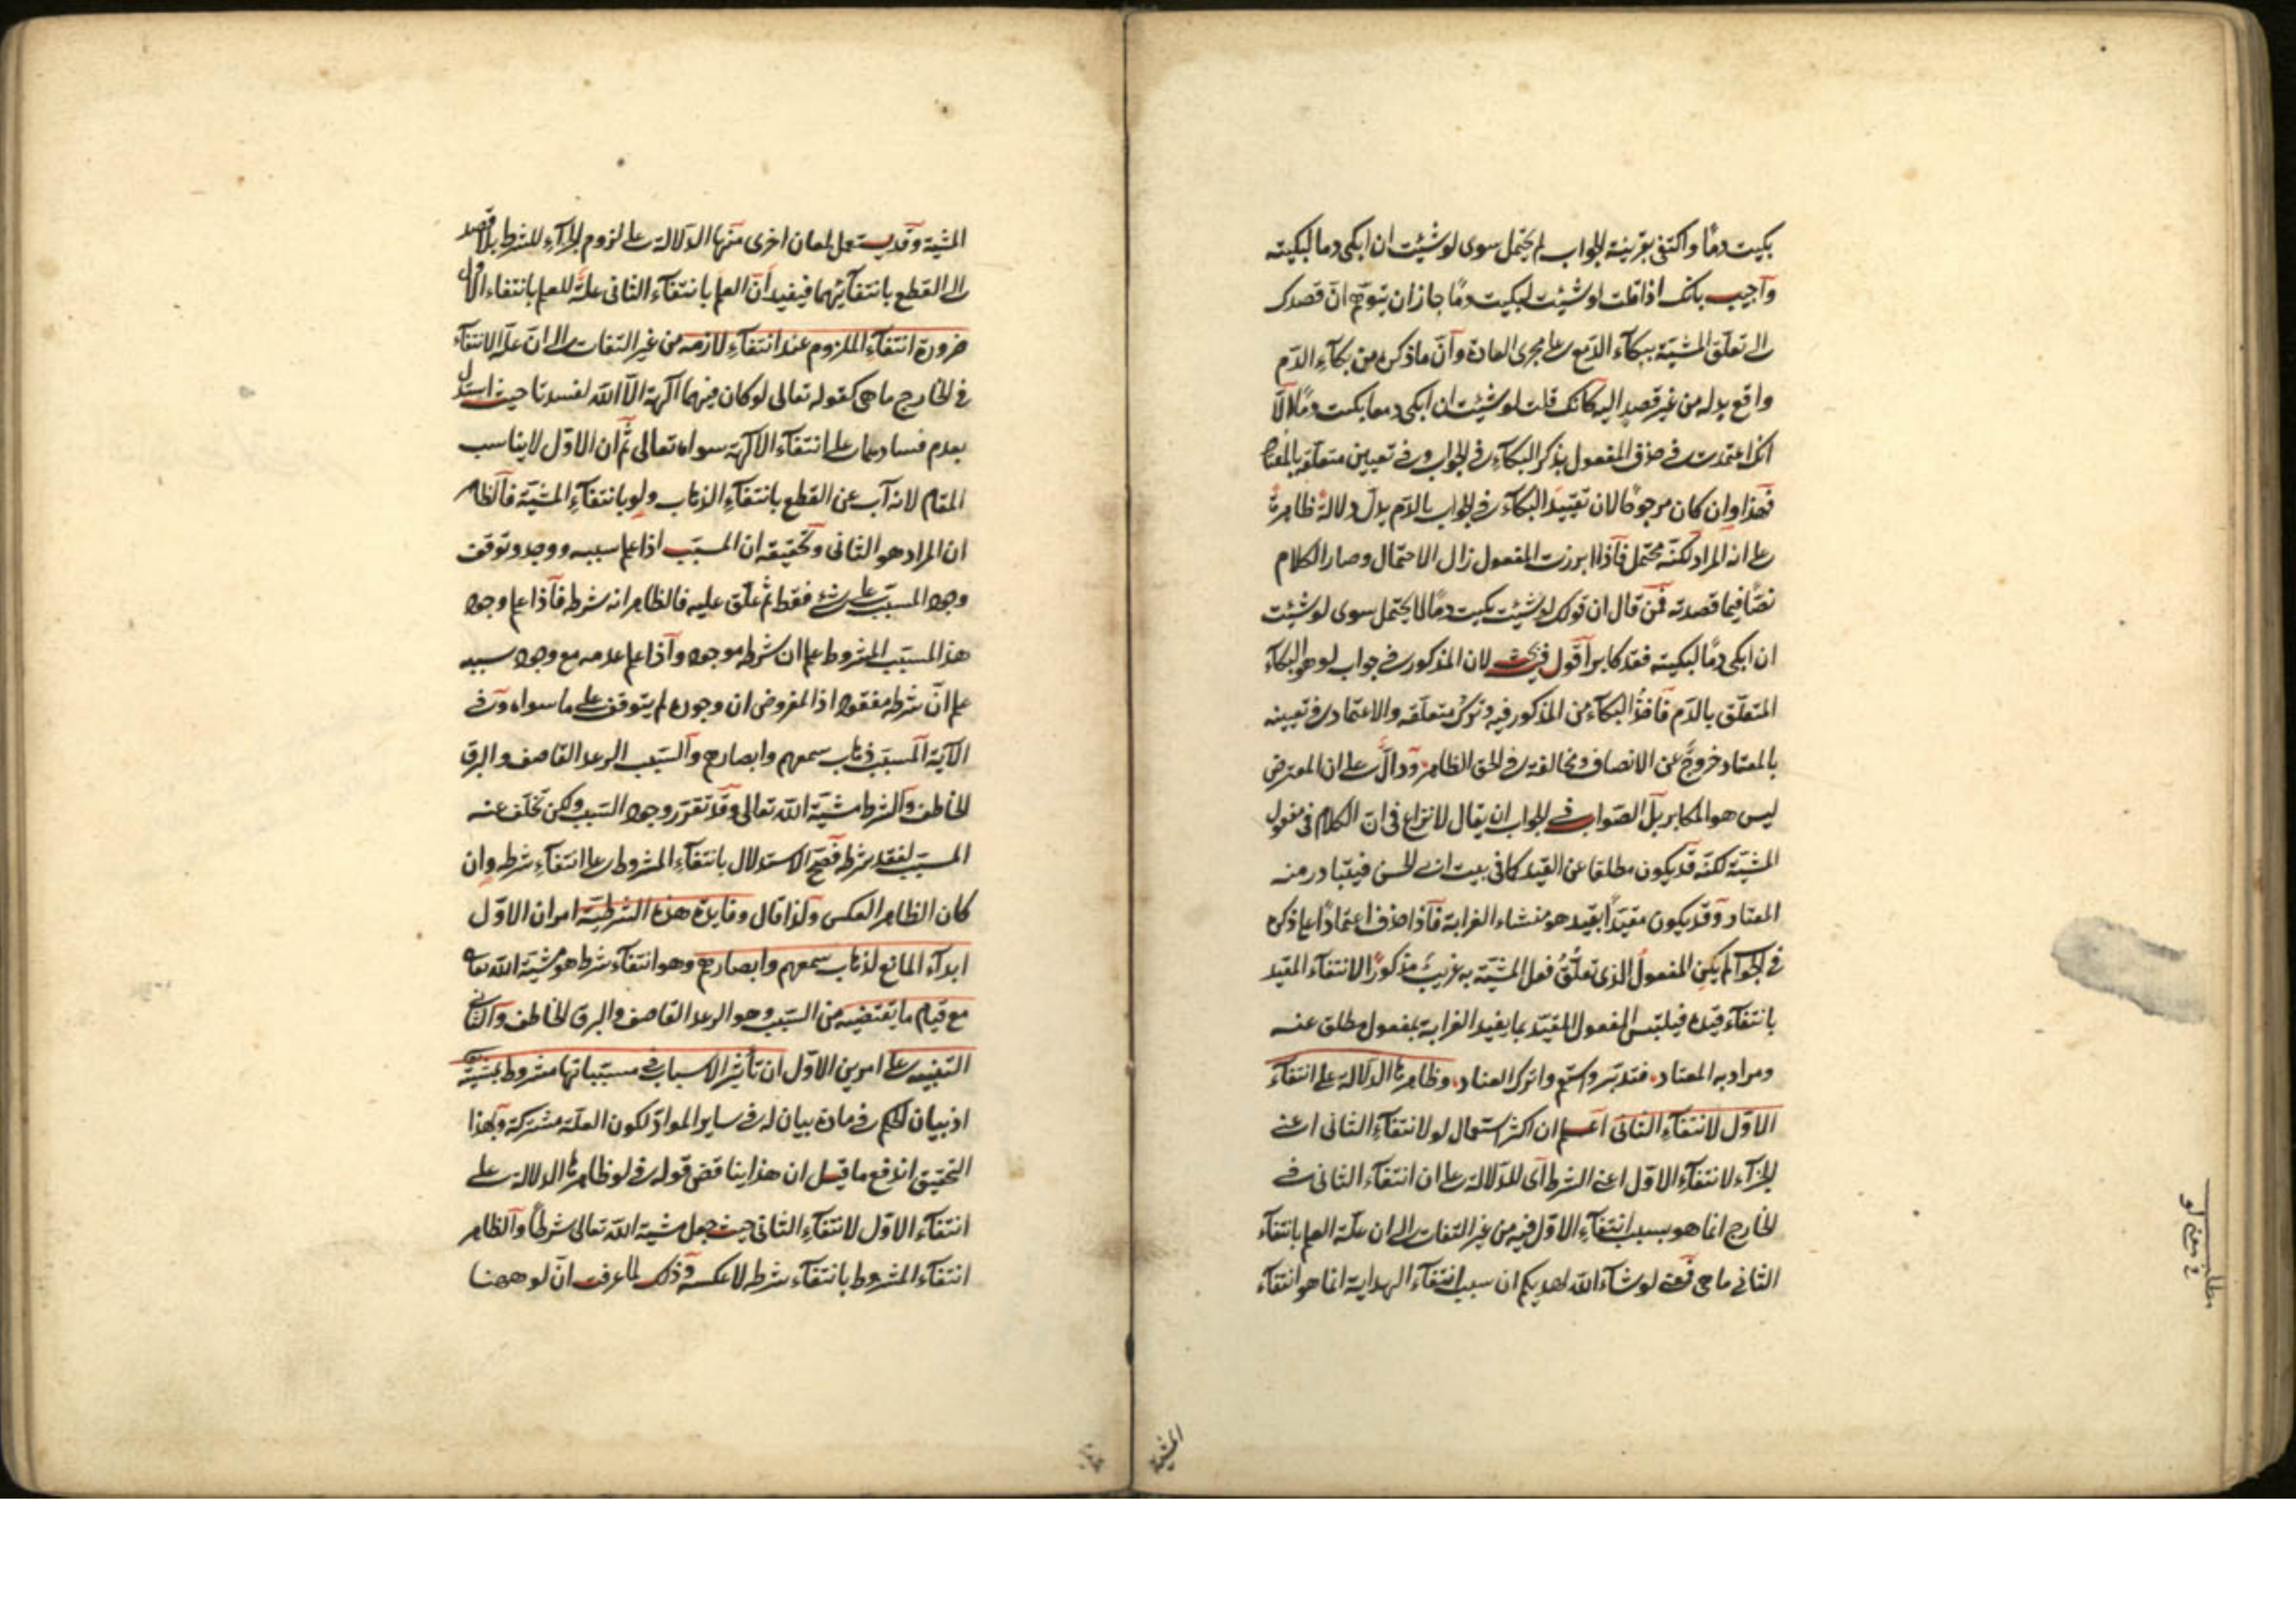 بكيت دمًا واكتفى بقرينة الجواب لم يحتمل سوى لو شئت ان ابكى دما لبكيته
وأجيب بانك اذا قلت لو شئت لبكيت دمًا جاز ان يتوهم انّ قصدك
الى تعلّق المشيّة ببكآء الدّمع على مجرى العادة وأنّ ما ذكره من بكآء الدّم
واقع بدله من غير قصد اليه كانك قلت لو شئت ان ابكى دمعا بكيت دمًا
انك اعتمدت فى حذف المفعول بذكر البكآء فى الجواب وفى تعيين متعلّقه بالمعتاد
فهذا وان كان مرجوحًا لان تقييد البكآء فى الجواب بالدّم يدلّ دلالة ظاهرة
على انه المراد لكنّه محتمل فآذا ابرزت المفعول زال الاحتمال وصار الكلام
نصّا فيما قصدته فمن قال ان قولك لو شئت بكيت دمًا لا يحتمل سوى لو شئت
ان ابكى دمًا لبكيته فقد كابر أقول فيه بحث لان المذكور فى جواب لو هو البكآء
المتعلّق بالدّم فأخذُ البكآء من المذكور فيه وترك متعلّقه والاعتماد فى تعيينه
بالمعتاد خروجٌ عن الانصاف ومخالفة فى الحق الظاهر ودالٌّ على ان المعترض
ليس هو المكابر بل الصّواب فى الجواب ان يقال لا نزاع فى انّ الكلام فى مفعول
المشيّة لكنّه قد يكون مطلقا عن القيد كما فى بيت ابى الحسن فيتبادر منه
المعتاد وقد يكون مقيّداً بقيد هو منشاء الغرابة فآذا حذف اعتمادًا على ذكره
فى الجواب لم يكن المفعول الذى تعلّقُ فعل المشيّة به غريبٌ مذكورًا لانتفاء المقيّد
بانتفآء قيده فيلتبس المفعول المقيّد بما يفيد الغرابة بمفعول مطلق عنه
ومراد به المعتاد فتدبّر واستقم واترك العناد وظاهرها الدلالة على انتفآء
الاوّل لانتفآء الثانى اعلم ان اكثر استعمال لو لانتفآء الثانى اعنى
الجزآء لانتفآء الاوّل اعنى الشرط أى للدّلالة على ان انتفآء الثانى فى
الخارج انما هو بسبب انتفآء الاوّل فيه من غير التفات الى ان علّة العلم بانتفآء
الثانى ما هى فمعنى لو شآء الله لهديكم ان سبب انتفآء الهداية انما هو انتفآء
المشية
مطلب
فى معنى لو
المشيّة وقد يستعمل لمعان اخرى منها الدّلالة على لزوم الجزآء للشرط بلا قصد
الى القطع بانتفآئهما فيفيد أنّ العلم بانتفآء الثانى علّة للعلم بانتفاء الاوّل
ضرورة انتفآء الملزوم عند انتفآء لازمه من غير التفات الى انّ علّة الانتفآء
فى الخارج ما هى كقوله تعالى لو كان فيهما آلهة الّا الله لفسدتا حيث استدل
بعدم فسادهما على انتفآء الآلهة سواه تعالى ثم ان الاوّل لا يناسب
المقام لانه آب عن القطع بانتفآء الذهاب ولو بانتفآء المشيّة فالظاهر
ان المراد هو الثانى وتحقيقه ان المسبّب اذا علم سببه ووجد وتوقف
وجود المسبّب على شئ فقط ثم علّق عليه فالظاهر انه شرط فآذا علم وجود
هذا المسبّب المشروط علم ان شرطه موجود وآذا علم عدمه مع وجود سببه
علم انّ شرطه مفقود اذ المفروض ان وجوده لم يتوقف على ما سواه وفى
الآية المسبّب ذهاب سمعهم وابصارهم والسّبب الرعد القاصف والبرق
الخاطف والشرط مشيّة الله تعالى وقد تقرّر وجود السّبب ولكن تخلّف عنه
المسبّب لفقد شرطه فصحّ الاستدلال بانتفآء المشروط على انتفآء شرطه وان
كان الظاهر العكس ولذا قال وفايدة هذه الشرطيّة امران الاوّل
ابدآء المانع لذهاب سمعهم وابصارهم وهو انتفآء شرط هو مشيّة الله تعالى
مع قيام ما يقتضيه من السّبب وهو الرعد القاصف والبرق الخاطف والثانى
التنبيه على امرين الاوّل ان تأثير الاسباب فى مسبّباتها مشروط بمشيّة
اذ بيان الحكم فى مادة بيان له فى ساير الموادّ لكون العلّة مشتركة وبهذا
التحقيق اندفع ما قيل ان هذا يناقض قوله فى لو ظاهرها الدلالة على
انتفآء الاوّل لانتفآء الثانى حيث جعل مشيّة الله تعالى شرطًا والظاهر
انتفآء المشروط بانتفآء شرطه لا عكسه وذلك لما عرفت انّ لو ههنا